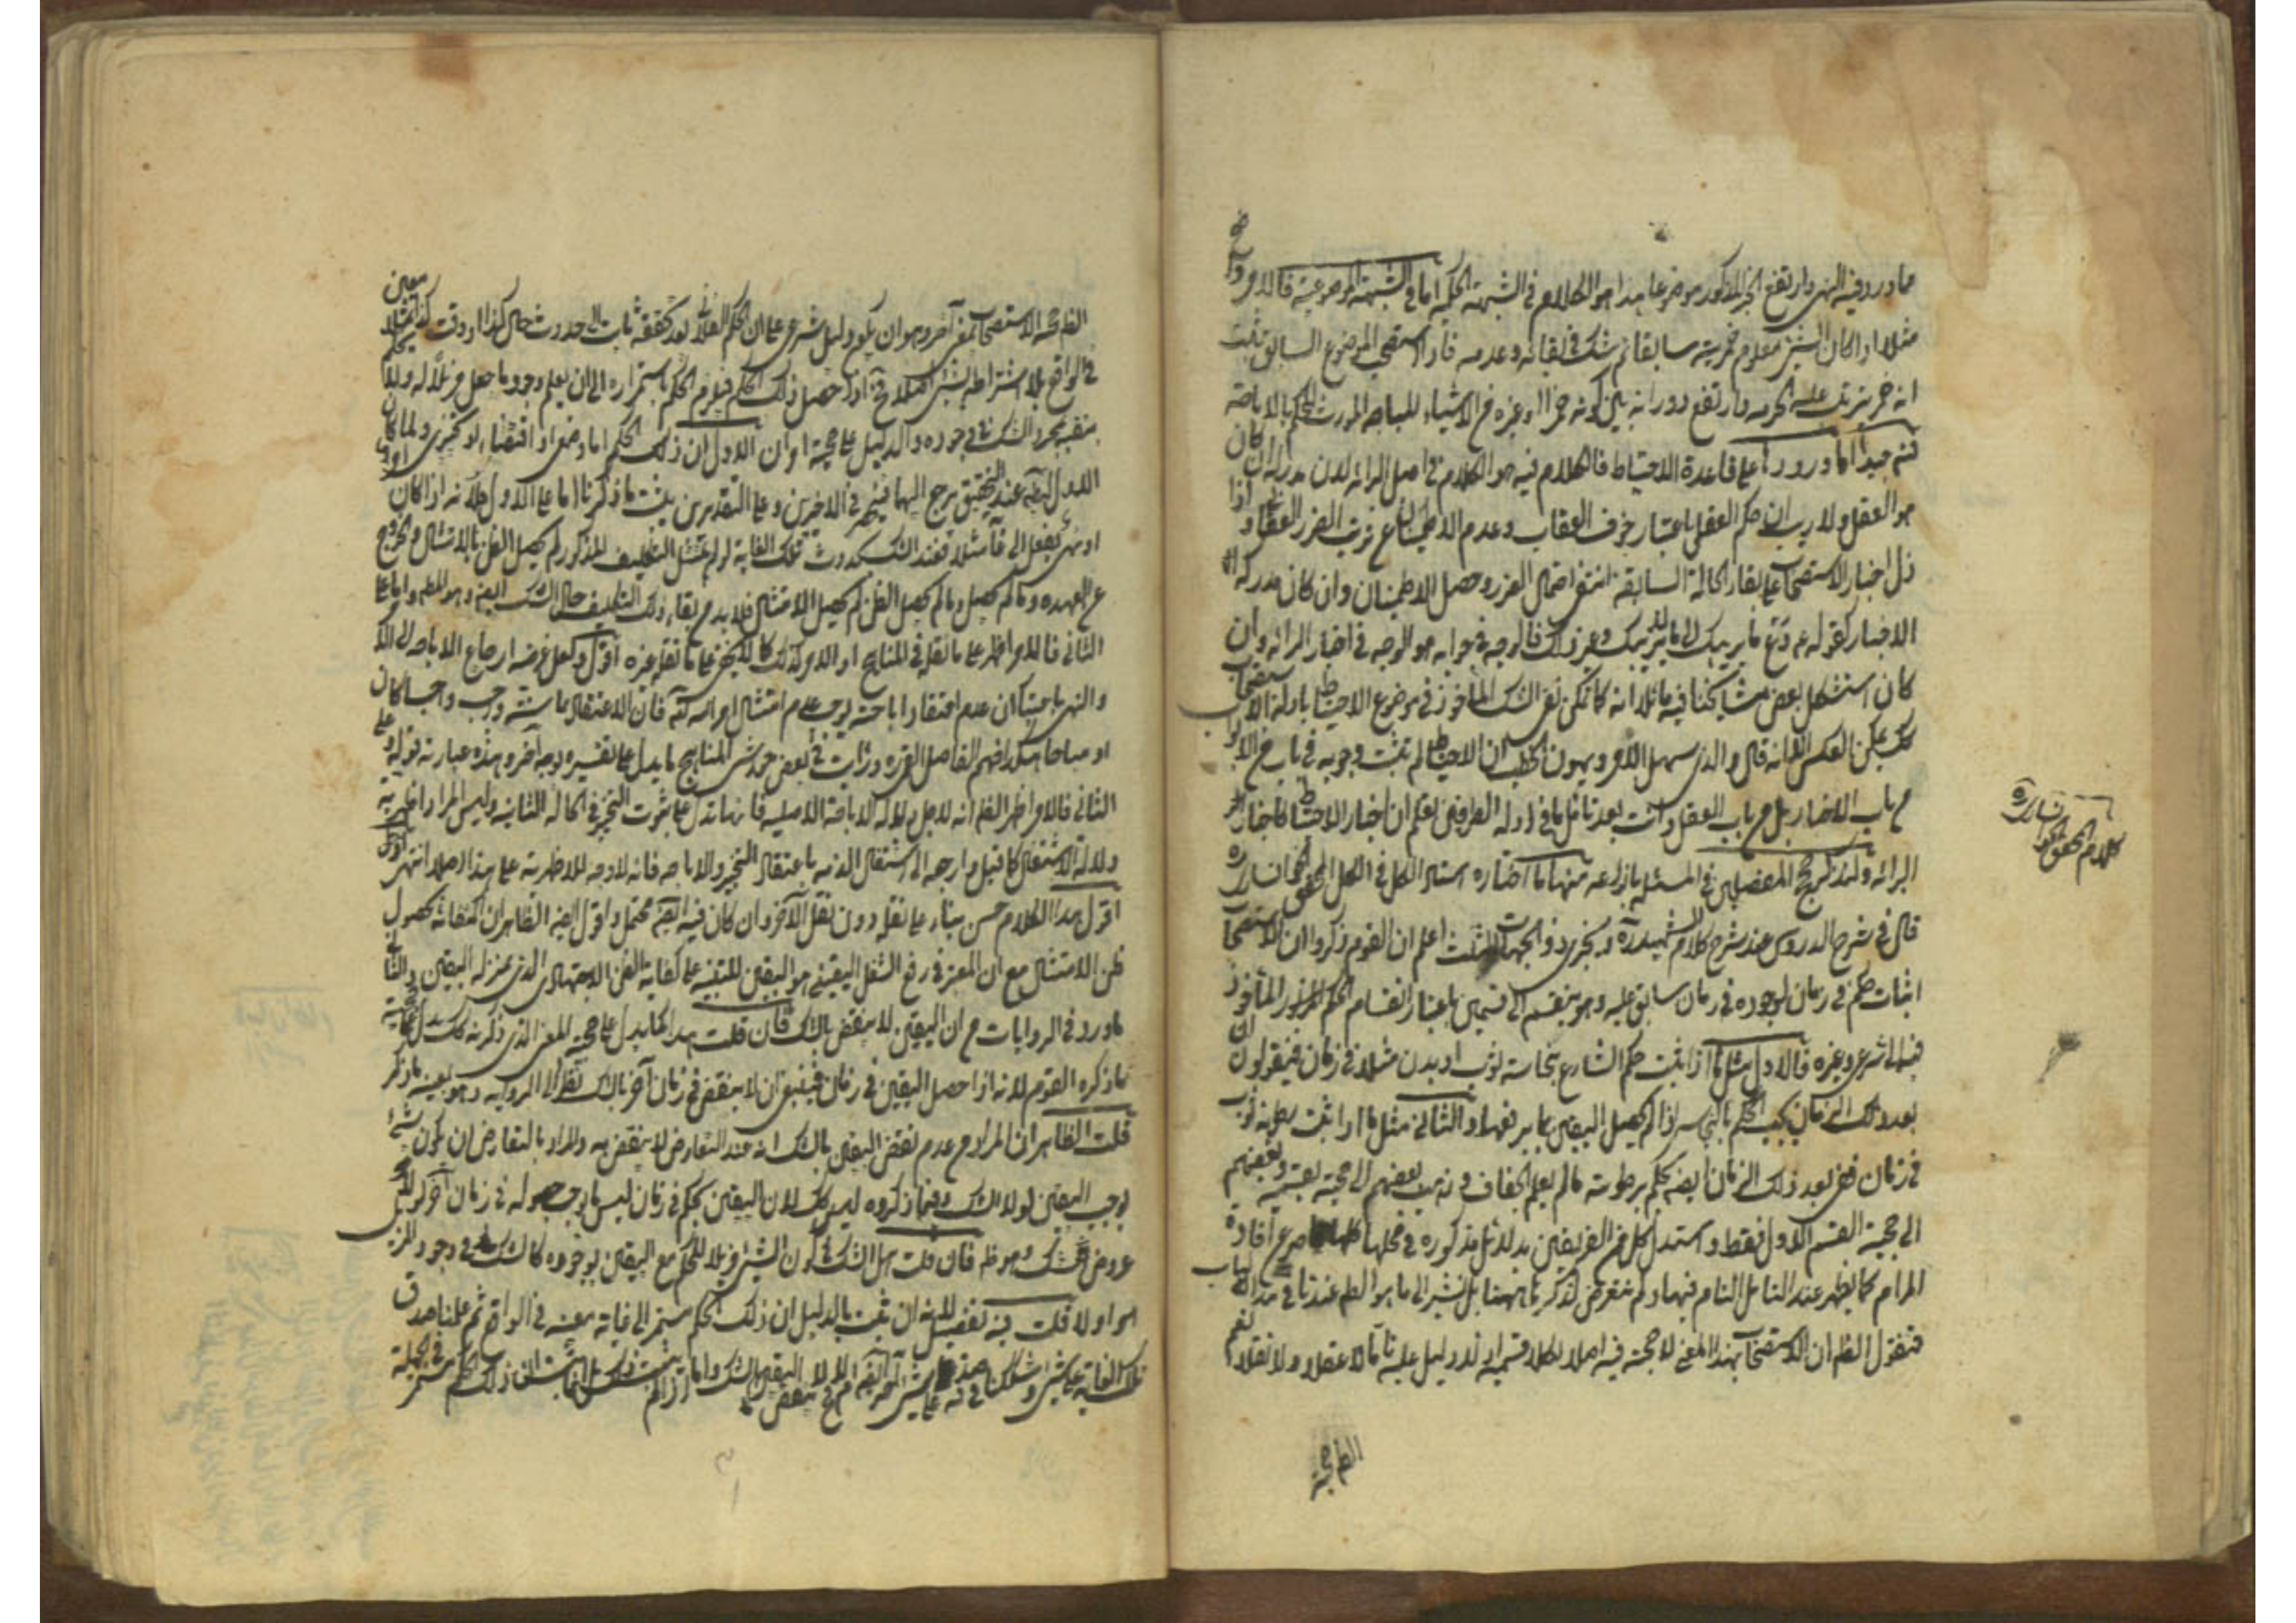 مما ورد فيه النهى وارتفع الجزء المذكور موضوعا هذا هو الكلام فى الشبهة الحكمية اما فى الشبهة الموضوعية فالامر واضح
مثلا اذا كان الشىء معلوم خمريته سابقا ثم شك فى بقائه وعدمه فاذا استصحب الموضوع السابق يثبت
انه خمر يترتب عليه الحرمة وارتفع دورانه بين كونه خمرا او غيره من الاشياء المباحة المورث للحكم بالاباحة
واما وروده على قاعدة الاحتياط فالكلام فيه هو الكلام فى اصل البرائة لان مدركه ان كان
هو العقل ولا ريب ان حكم العقل باعتبار خوف العقاب وعدم الاطمينان عن ترتب الضرر العقابى واذا
دل اخبار الاستصحاب على بقاء الحالة السابقة انتفى احتمال الضرر وحصل الاطمينان وان كان مدركه
الاخبار كقوله ع دع ما يريبك الى ما لا يريبك وغير ذلك فالوجه فى جوابه هو الوجه فى اخبار البرائة وان
كان استشكل بعض مشايخنا فيه قائلا انه كما يمكن نفى الشك المأخوذ فى موضوع الاحتياط بادلة الاستصحاب
كك يمكن العكس الا انه قال والذى يسهل الامر ويهون الخطب ان الاحتياط لم يثبت وجوبه فى باب من الابواب
من باب الاخبار بل من باب العقل وانت بعد تامل ما فى ادلة الطرفين تعلم ان اخبار الاحتياط كاخبار
البرائة ولنذكر حجج المفصلين فى المسئلة منها ما اختاره استاد الكل فى الكل المحقق الخوانسارى
كلام المحقق الخوانسارى
قال فى شرح الدروس عند شرح كلام الشهيد ره ويجزى ذو الجهات الثلث اعلم ان القوم ذكروا ان الاستصحاب
اثبات حكم فى زمان لوجوده فى زمان سابق عليه وهو ينقسم الى قسمين باعتبار انقسام الحكم المزبور المأخوذ
فيه الى شرعى وغيره فالاول مثل ما اذا ثبت حكم الشارع بنجاسة ثوب او بدن مثلا فى زمان فيقولون ان
بعد ذلك الزمان يجب الحكم بالنجاسة اذا لم يحصل اليقين بما يرفعها والثانى مثل ما اذا ثبت رطوبة ثوب
فى زمان ففى بعد ذلك الزمان ايضه يحكم برطوبته ما لم يعلم الجفاف وذهب بعضهم الى حجيته بقسميه وبعضهم
الى حجية القسم الاول فقط واستدل كل من الفريقين بدلائل مذكورة فى محلها كلها عن افادة
المرام كما يظهر عند التامل التام فيها ولم نتعرض لذكرها ههنا بل نشير الى ما هو الظ عندنا فى هذا الباب
فنقول الظ ان الاستصحاب بهذا المعنى لا حجية فيه اصلا لكلا قسميه اذ لا دليل عليه تاما لا عقلا ولا نقلا نعم
الظ حجية
الظ حجية الاستصحاب بمعنى آخر وهو ان يكون دليل شرعى على ان الحكم الفلانى بعد تحققه ثابت الى حدوث حال كذا او وقت كذا مثلا معين
فى الواقع بلا اشتراطه بشىء اصلا فح اذا حصل ذلك الحكم فيلزم الحكم باستمراره الى ان يعلم وجود ما جعل مزيلا له ولا يحكم
بنفيه بمجرد الشك فى وجوده والدليل على حجيته امران الاول ان ذلك الحكم اما وضعى او اقتضائى او تخييرى ولما كان
الاول ايضه عند التحقيق يرجع اليهما فينحصر فى الاخيرين وعلى التقديرين يثبت ما ذكرنا اما على الاول فلانه اذا كان امر
او نهى بفعل الى غاية مثلا فعند الشك بحدوث تلك الغاية لو لم يمتثل التكليف المذكور لم يحصل الظن بالامتثال والخروج
عن العهدة وما لم يحصل الظن لم يحصل الامتثال فلا بد من بقاء ذلك التكليف حال الشك ايضه وهو المط واما على
الثانى فالامر اظهر على ما نقله فى المناهج او الامر كذلك كما لا يخفى على ما نقله غيره اقول ولعل غرضه ارجاع الاباحة الى الامر
والنهى باعتبار ان عدم اعتقاد اباحته يوجب عدم امتثال اوامر الله فان الاعتقاد بما سنه واجب واجبا كان
او مباحا هكذا فهم الفاضل القزوينى ورايت فى بعض حواشى المناهج ما يدل على تفسيره بوجه آخر وهذه عبارته قوله وعلى
الثانى فالامر اظهر الظ انه لاجل دلالة الاباحة الاصلية فانها تدل على ثبوت التخيير فى الحالة الثانية وليس المراد اظهرية
دلالة الاشتغال كما قيل وارجعه الى اشتغال الذمة باعتقاد التخيير والاباحة فانه لا وجه للاظهرية على هذا اصلا انتهى اقول
اقول هذا الكلام حسن بناء على نقله دون نقل الآخر وان كان فيه ايضه محتمل واقول ايضه الظاهر ان اكتفائه بحصول
ظن الامتثال مع ان المعتبر فى رفع الشغل اليقينى هو اليقين للتنبيه على كفاية الظن الاجتهادى الذى بمنزلة اليقين والثانى
ما ورد فى الروايات من ان اليقين لا ينقض بالشك فان قلت هذا كما يدل على حجية المعنى الذى ذكرته كك يدل على حجية
ما ذكره القوم لانه اذا حصل اليقين فى زمان فينبغى ان لا ينقض فى زمان آخر بالشك نظرا الى الرواية وهو بعينه ما ذكر
قلت الظاهر ان المراد من عدم نقض اليقين بالشك انه عند التعارض لا ينقض به والمراد بالتعارض ان يكون شىء
يوجب اليقين لولا الشك وفيما ذكروه ليس كك لان اليقين بحكم فى زمان ليس مما يوجب حصوله فى زمان آخر لولا
عروض الشك وهو ظ فان قلت هل الشك فى كون الشىء مزيلا للحكم مع اليقين بوجوده كالشك فى وجود المزيل
هو او لا قلت فيه تفصيل لانه ان ثبت بالدليل ان ذلك الحكم مستمر الى غاية معينة فى الواقع ثم علمنا صدق
تلك الغاية على شىء وشككنا فى صدقها على شىء آخر ايضه ام لا فح لا ينقض اليقين بالشك واما اذا لم يثبت ذلك بل انما ثبت ان ذلك الحكم مستمر فى الجملة